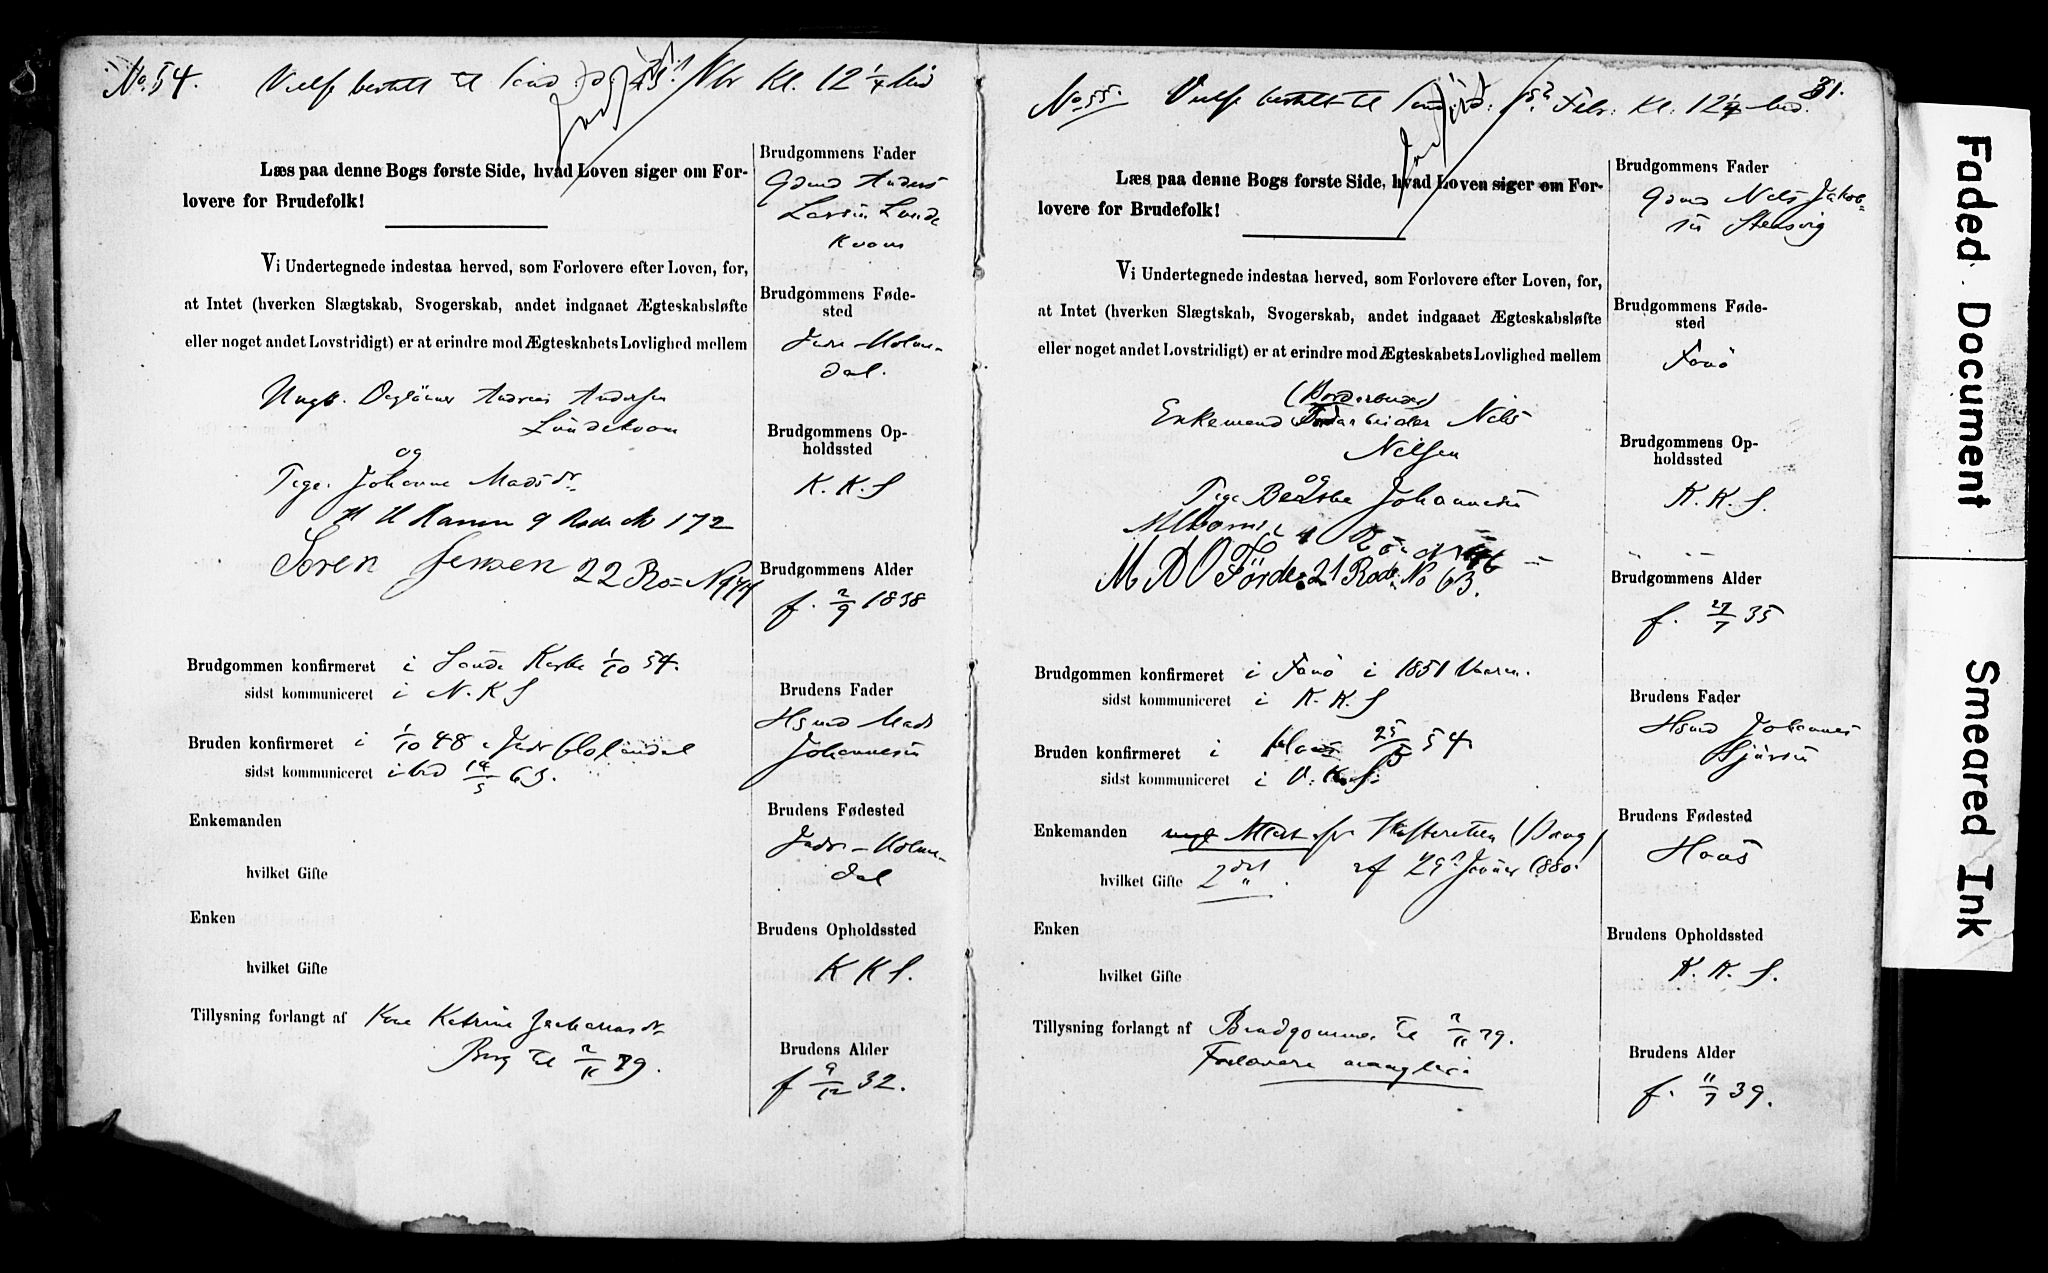 No. 54. Vielse bestilt til Kl. 12 1/4
Læs paa denne Bogs første Side, hvad Loven siger om For-
lovere for Brudefolk!
Vi Undertegnede indestaa herved, som Forlovere efter Loven, for,
at Intet (hverken Slægtskab, Svogerskab, andet indgaaet Ægteskabsløfte
eller noget andet Lovstridigt) er at erindre mod Ægteskabets Lovlighed mellem
Ungk. Andreas Andersen
Lundekvam
og
Pige Johanne Madsdr
9 Rode No 172
Søren Jensen 22 Ro=
Brudgommen konfirmeret i 1/10 54.
sidst kommuniceret i N. K. S
Bruden konfirmeret i 1/10 48 i Indr Holmedal
sidst kommuniceret i 63.
Enkemanden
hvilket Gifte
Enken
hvilket Gifte
Tillysning forlangt af Kone Katrine
Berg til 2/11 79.
Brudgommens Fader
Gdmd Anders
Larsen Lunde
kvam
Brudgommens Føde-
sted
Indr Holme-
dal.
Brudgommens Op-
holdssted
K. K. S
Brudgommens Alder
f. 2/9 1838
Brudens Fader
Hsmd Mads
Johannesen
Brudens Fødested
Indr-Holme-
dal
Brudens Opholdssted
K K S.
Brudens Alder
f 9/12 32.
31.
No. 55. Vielse bestilt til Febr: Kl: 12 1/4
Læs paa denne Bogs første Side, hvad Loven siger om For-
lovere for Brudefolk!
Vi Undertegnede indestaa herved, som Forlovere efter Loven, for,
at Intet (hverken Slægtskab, Svogerskab, andet indgaaet Ægteskabsløfte
eller noget andet Lovstridigt) er at erindre mod Ægteskabets Lovlighed mellem
Enkemand Nils
Nilsen
og
Pige Johannesen
M A O Førde: 21 Rode No 63.
Brudgommen konfirmeret i Fanø i 1851
sidst kommuniceret i K. K. S
Bruden konfirmeret i 54
sidst kommuniceret i
Enkemanden Attest fra Skifteretten
hvilket Gifte 2det af 29 Januar 1880.
Enken
hvilket Gifte
Tillysning forlangt af Brudgommen til 2/11 79.
Forlovere mangler
Brudgommens Fader
Gdmd Nils Jakob-
sen Stensvig
Brudgommens Føde-
sted
Fanø
Brudgommens Op-
holdssted
K. K. S.
Brudgommens Alder
f. 27/7 35
Brudens Fader
Hsmd Johannes
Brudens Fødested
Hous
Brudens Opholdssted
K. K. S.
Brudens Alder
f. 11/7 39.
Faded Document
Smeared Ink